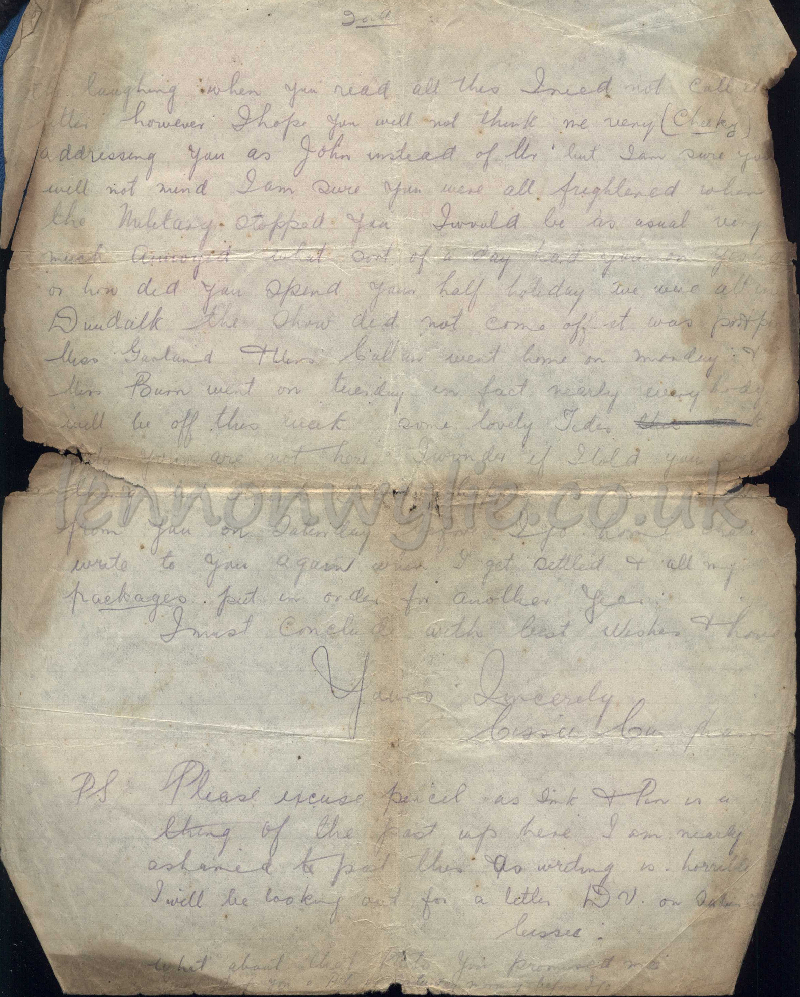 laughing when you read all this I need not call
however I hope you will not think me very (Cheeky)
addressing you as John instead of Mr but I am sure you
will not mind I am sure you were all frightened when
the Military stopped you I would be as usual very
much annoyed what sort of a day had you on
or how did you spend your half holiday we were all in
Dundalk the Show did not come off it was
Miss Garland & Miss went home on monday &
Miss Burn went on tuesday in fact nearly every body
will be off this week some lovely Tides
you are not here I wonder if I told you
lennonwylie.co.uk
from you on Saturday I go home
write to you again when I get settled & all my
packages put in order for another Year.
I must conclude with best wishes &
Yours Sincerely
Cissie
PS Please excuse pencil as Ink & Pen is a
thing of the past up here I am nearly
ashamed to post this as writing is horrible
I will be looking out for a letter D.V. on
Cissie.
What about that you promised me